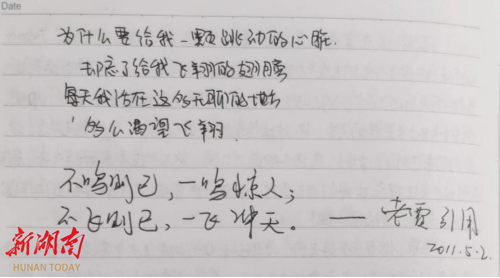 Date
为什么要给我一颗跳动的心脏
却忘了给我飞翔的翅膀
每天我活在这个无聊的地
的么渴望飞翔
不鸣则已，一鸣惊人；
不飞则已，一飞冲天。—— 老贾引用
2011.5.2.
新湖南
HUNAN TODAY